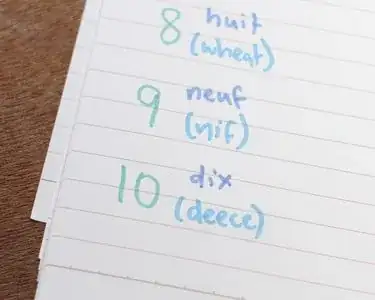 8 huit
(wheat)
9 neuf
(nif)
10 dix
(deece)